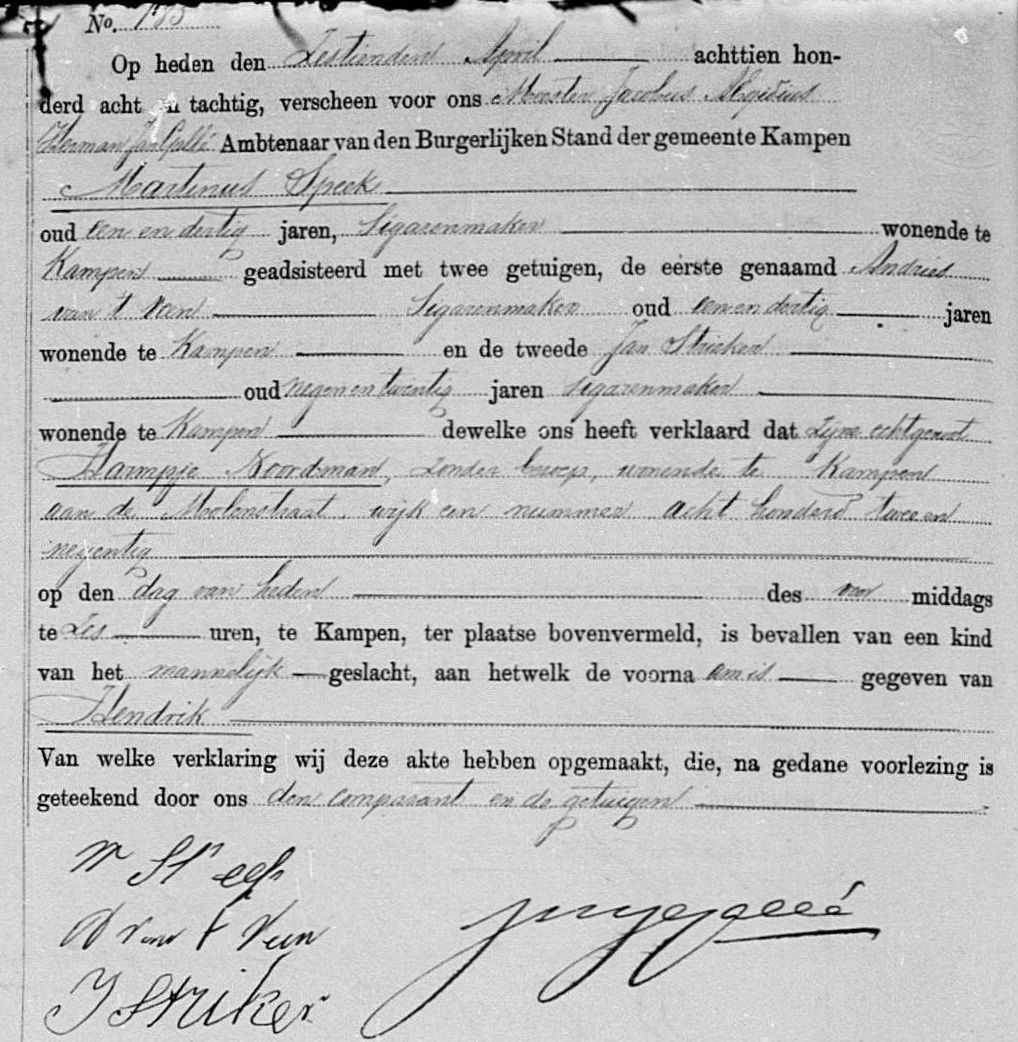 No. 185
Op heden den Zestienden April achttien hon-
derd acht en tachtig, verscheen voor ons Meester Jacobus Aegidius
Herman Jan Gallé Ambtenaar van den Burgerlijken Stand der gemeente Kampen
Martinus Speek
oud een en dertig jaren, Sigarenmaker wonende te
Kampen geadsisteerd met twee getuigen, de eerste genaamd Andries
van 't Veen Sigarenmaker oud een en dertig jaren
wonende te Kampen en de tweede Jan Strieker
oud negen en twintig jaren Sigarenmaker
wonende te Kampen dewelke ons heeft verklaard dat zijne echtgenoot
Harmpje Noordman, zonder beroep, wonende te Kampen
aan de Molenstraat, wijk een nummer acht honderd twee en
negentig
op den dag van heden des voor middags
te Zes uren, te Kampen, ter plaatse bovenvermeld, is bevallen van een kind
van het mannelijk geslacht, aan hetwelk de voorna am is gegeven van
Hendrik
Van welke verklaring wij deze akte hebben opgemaakt, die, na gedane voorlezing is
geteekend door ons den comparant en de getuigen
M Speek
A van t Veen
J Striker